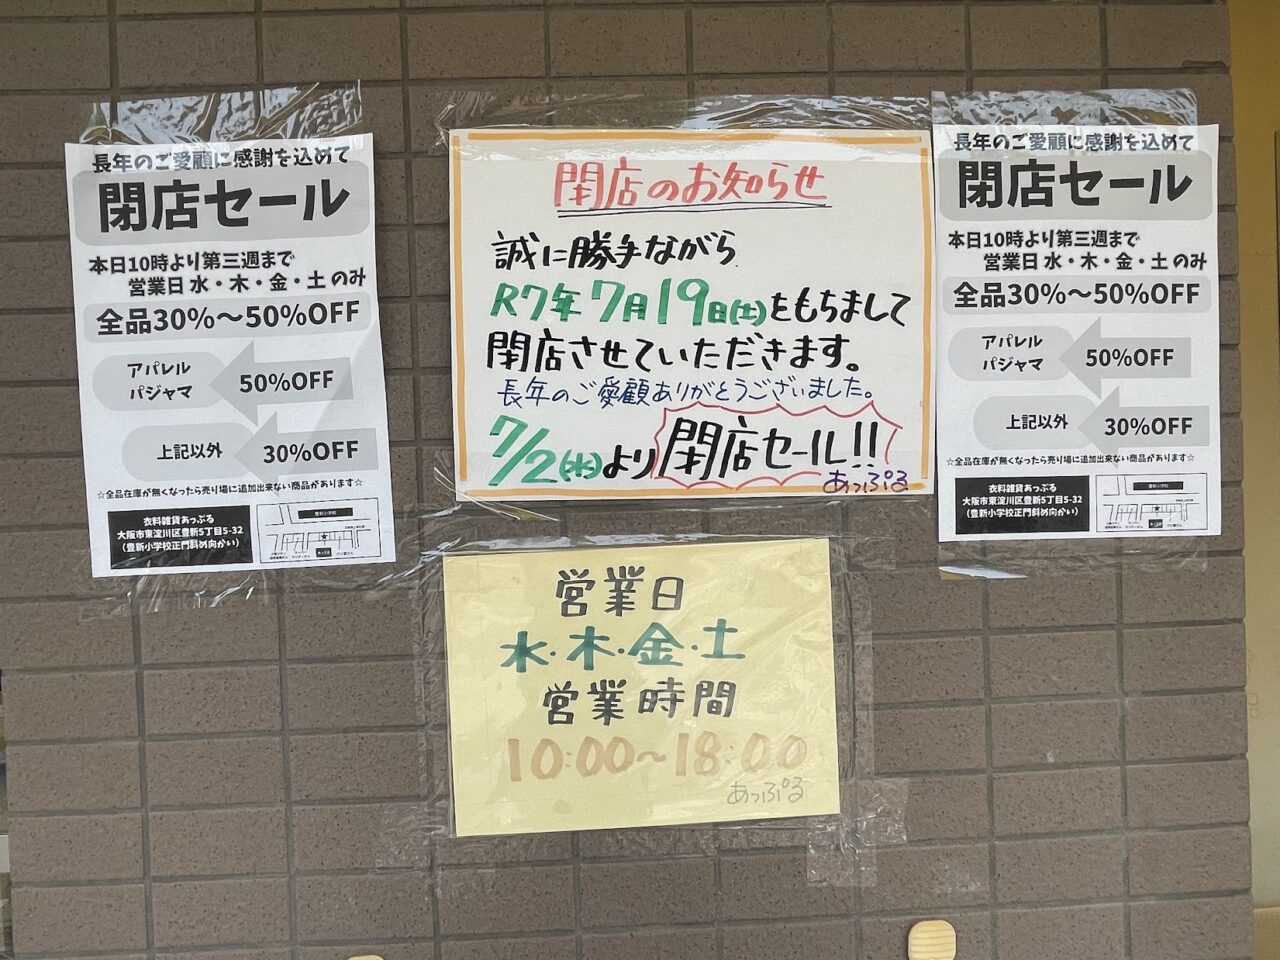 長年のご愛顧に感謝を込めて
閉店セール
本日10時より第三週まで
営業日 水・木・金・土 のみ
全品30%～50%OFF
アパレル
パジャマ
50%OFF
上記以外
30%OFF
☆全品在庫が無くなったら売り場に追加出来ない商品があります☆
衣料雑貨あっぷる
大阪市東淀川区豊新5丁目5-32
(豊新小学校正門斜め向かい)
豊新小学校
閉店のお知らせ
誠に勝手ながら
R7年7月19日(土)をもちまして
閉店させていただきます。
長年のご愛顧ありがとうございました。
7/2(水)より閉店セール!!
あっぷる
営業日
水・木・金・土
営業時間
10:00～18:00
あっぷる
長年のご愛顧に感謝を込めて
閉店セール
本日10時より第三週まで
営業日 水・木・金・土 のみ
全品30%～50%OFF
アパレル
パジャマ
50%OFF
上記以外
30%OFF
☆全品在庫が無くなったら売り場に追加出来ない商品があります☆
衣料雑貨あっぷる
大阪市東淀川区豊新5丁目5-32
(豊新小学校正門斜め向かい)
豊新小学校